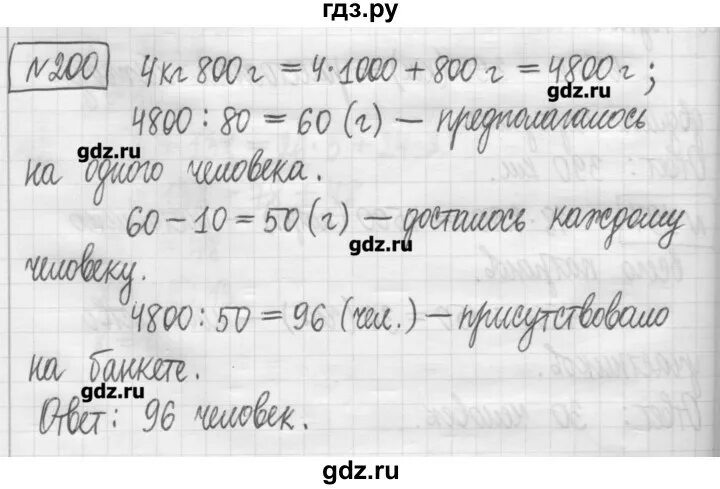 гдз.ру
№200 4кг 800г = 4·1000 + 800 г = 4800 г;
gdz.ru
4800 : 80 = 60 (г) — предполагалось
gdz.ru
на одного человека.
60 – 10 = 50 (г) — досталось каждому
gdz.ru
человеку.
4800 : 50 = 96 (чел.) — присутствовало
на банкете.
gdz.ru
Ответ: 96 человек.
gdz.ru